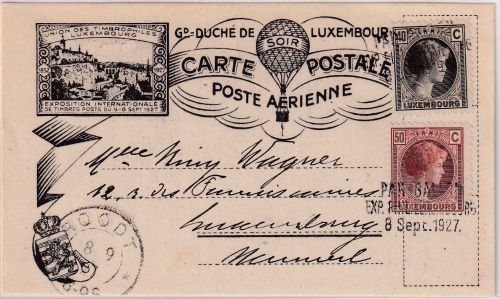 UNION DES TIMBROPHILES
LUXEMBOURG
1852
1927
EXPOSITION INTERNATIONALE
DE TIMBRES POSTE DU 4-8 SEPT. 1927
Gᴰ-DUCHÉ DE LUXEMBOURG
SOIR
CARTE POSTALE
POSTE AÉRIENNE
40 C
LUXEMBOURG
50 C
LUXEMBOURG
PAR BA
EXP. PHIL. LUXEMBOURG
8 Sept. 1927.
Mlle Niny Wagner
12. r. des Commissaires
Luxembourg
ROODT
8 9